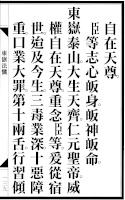 自在天尊
臣等志心皈身皈神皈命
東嶽泰山大生天齊仁元聖帝威
權自在天尊重念臣等爰從宿
世迨及今生三毒業深十惡障
重口業大罪第十兩舌行習傾
東嶽法懺